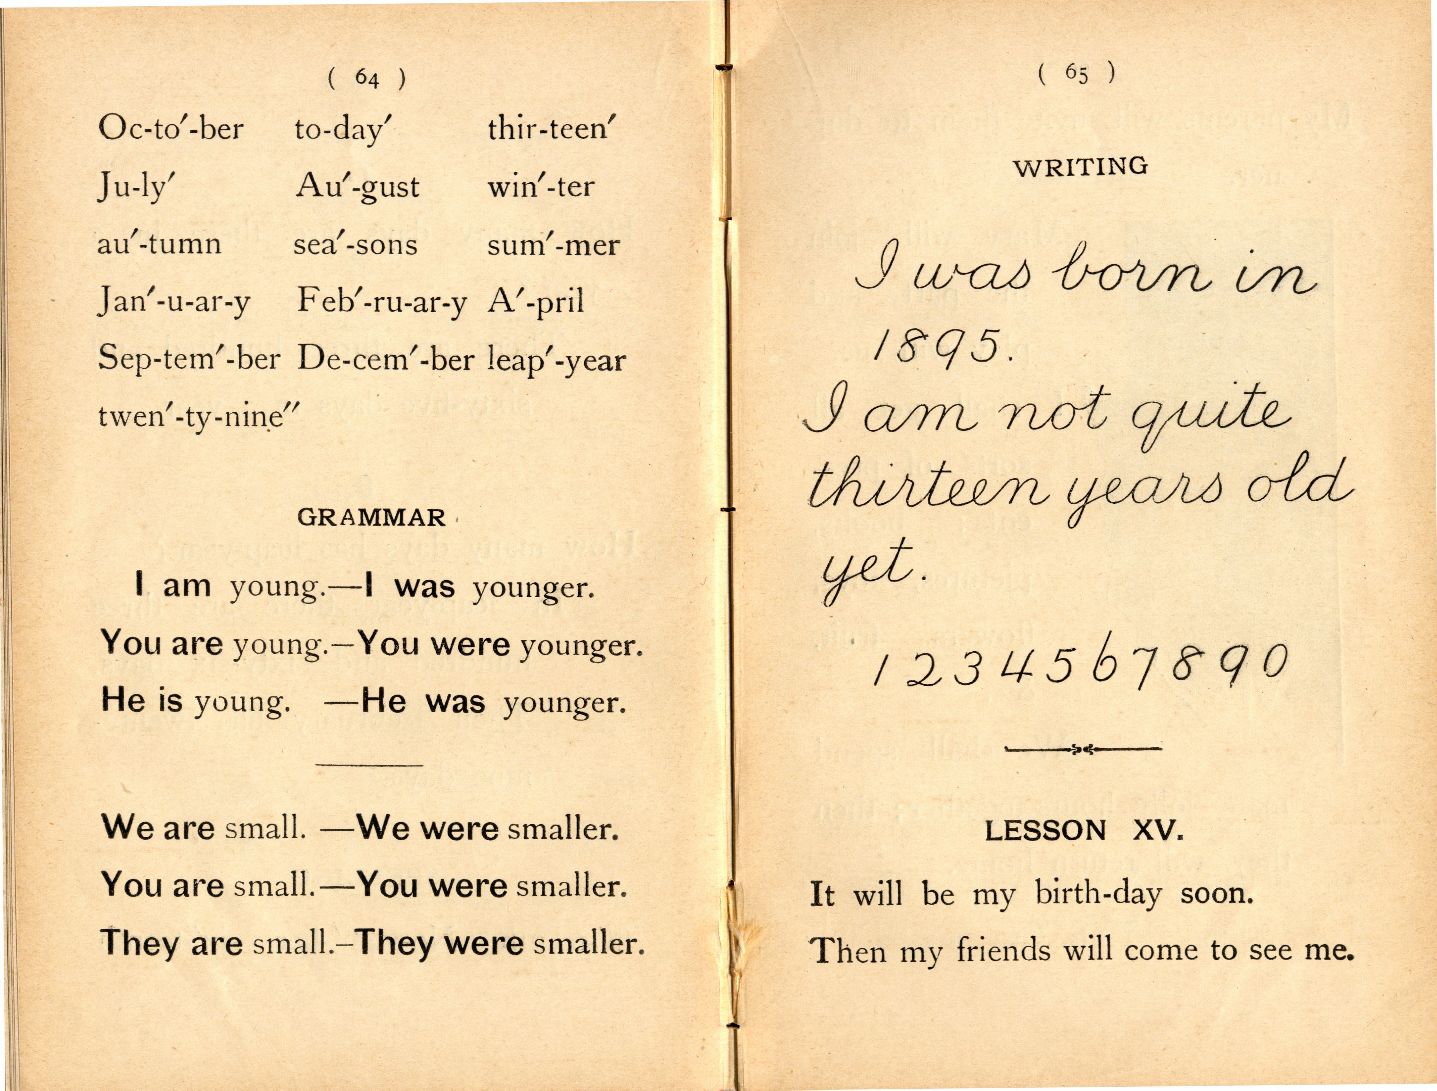 ( 64 )
Oc-to′-ber to-day′ thir-teen′
Ju-ly′ Au′-gust win′-ter
au′-tumn sea′-sons sum′-mer
Jan′-u-ar-y Feb′-ru-ar-y A′-pril
Sep-tem′-ber De-cem′-ber leap′-year
twen′-ty-nine″
GRAMMAR
I am young.—I was younger.
You are young.—You were younger.
He is young. —He was younger.
We are small. —We were smaller.
You are small.—You were smaller.
They are small.–They were smaller.
( 65 )
WRITING
I was born in
1895.
I am not quite
thirteen years old
yet.
1 2 3 4 5 6 7 8 9 0
LESSON XV.
It will be my birth-day soon.
Then my friends will come to see me.